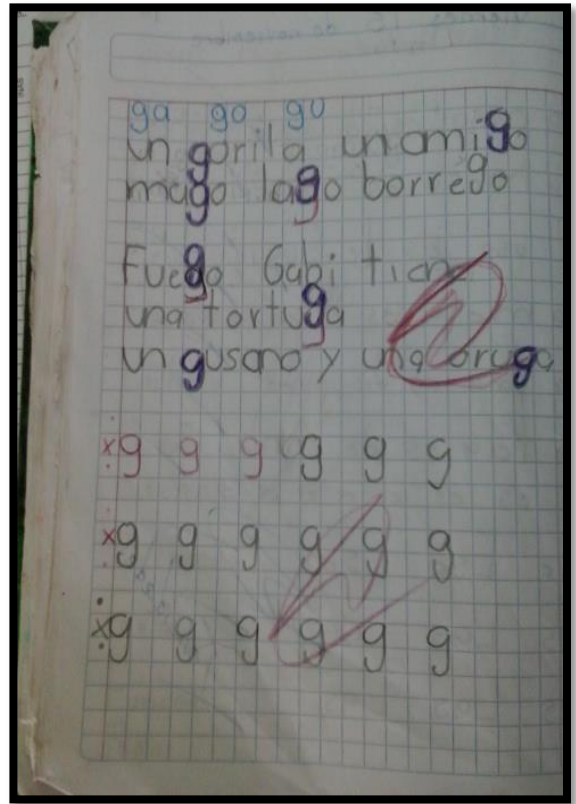 ga go gu
un gorila un amigo
mago lago borrego
Fuego Gabi tiene
una tortuga
un gusano y una oruga
g g g g g g
g g g g g g
g g g g g g